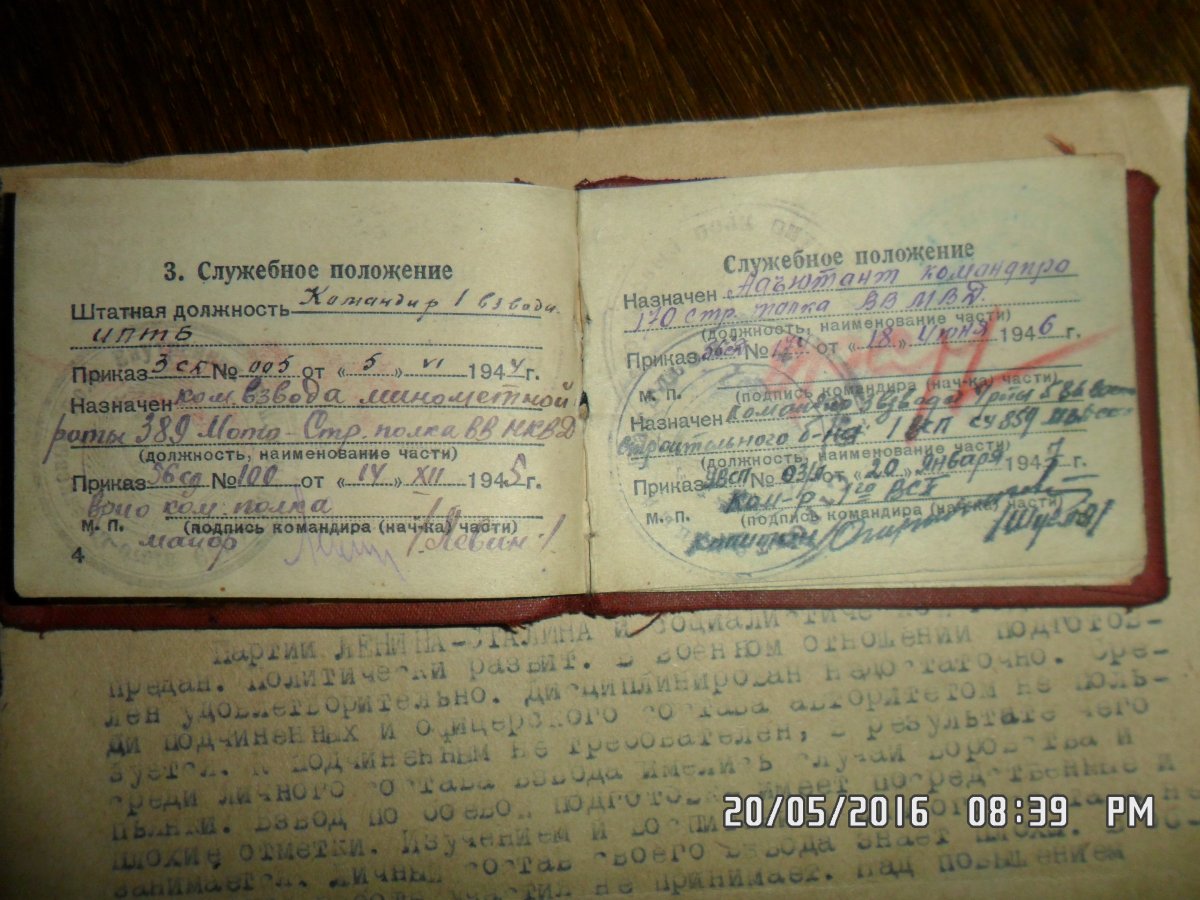 3. Служебное положение
Штатная должность Командир 1 взвода
ИПТБ
Приказ 3 ск № 005 от «5» VI 1944 г.
Назначен ком взвода минометной
роты 389 Мото-Стр. полка ВВ НКВД
(должность, наименование части)
Приказ 56сд № 100 от «14» XII 1945 г.
Врио ком. полка
М. П. (подпись командира (нач-ка) части)
майор /Левин/
4
Служебное положение
Назначен Адъютант командира
170 стр. полка ВВ МВД.
(должность, наименование части)
Приказ 56сд № от «18» июня 1946 г.
М. П. (подпись командира (нач-ка) части)
Назначен Командир взвода роты
строительного б-на 1 ВСП
(должность, наименование части)
Приказ № от «20» января 1947 г.
Ком-р ВСП
М. П. (подпись командира (нач-ка) части)
капитан
Партии ЛЕНИНА-СТАЛИНА и социалистической
предан. Политически развит. В военном отношении подготов-
лен удовлетворительно. Дисциплинирован недостаточно. Сре-
ди подчиненных и офицерского состава авторитетом не поль-
зуется. К подчиненным не требователен, в результате чего
среди личного состава взвода имелись случаи воровства и
пьянки. Взвод по боевой подготовке имеет посредственные и
плохие отметки. Изучением и
занимается. Личный состав своего взвода знает плохо.
не принимает. Над повышением
20/05/2016 08:39 PM